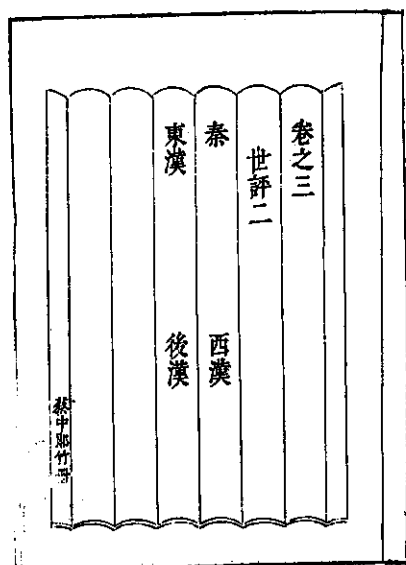 卷之三
世評二
秦 西漢
東漢 後漢
蔡中郎竹冊